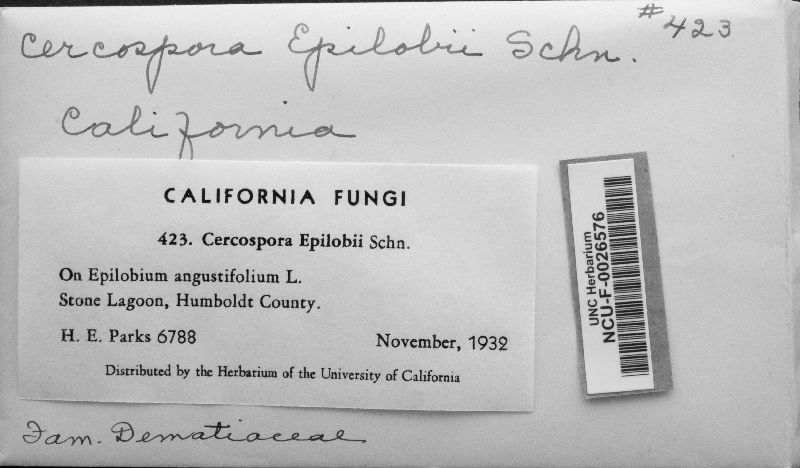 #423
Cercospora Epilobii Schn.
California
CALIFORNIA FUNGI
423. Cercospora Epilobii Schn.
On Epilobium angustifolium L.
Stone Lagoon, Humboldt County.
H. E. Parks 6788
November, 1932
Distributed by the Herbarium of the University of California
UNC Herbarium
NCU-F-0026576
Fam. Dematiaceae